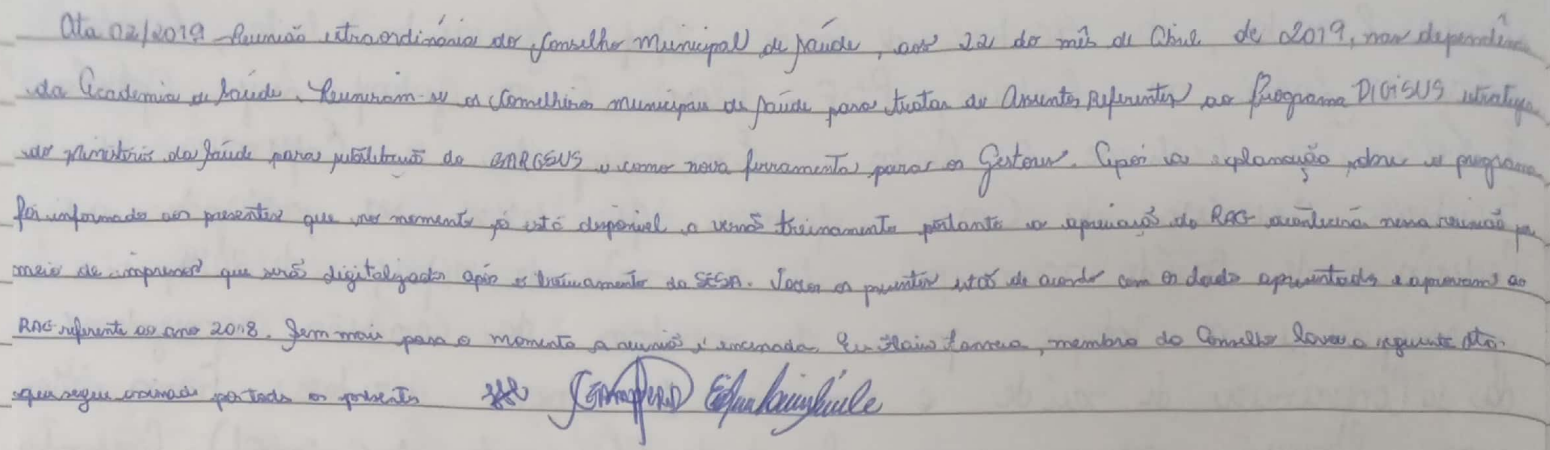 Ata 02/2019 Reunião extraordinária do Conselho Municipal de Saúde, aos 22 do mês de Abril de 2019, nas dependência
da Academia de Saúde. Reuniram-se os Conselheiros municipais de Saúde para tratar de Assuntos Referentes ao Programa DIGISUS estratégia
do Ministério da Saúde para substituição do SARGSUS e como nova ferramenta para os Gestores. Após a explanação sobre o programa
foi informado aos presentes que no momento já está disponível a versão treinamento portanto a apreciação do RAG acontecerá nessa reunião por
meio de impresso que será digitalizado após o treinamento da SESA. Todos os presentes estão de acordo com os dados apresentados e aprovam ao
RAG referente ao ano 2018. Sem mais para o momento a reunião é encerrada. Eu membro do Conselho lavro a seguinte Ata
que segue assinada por todos os presentes